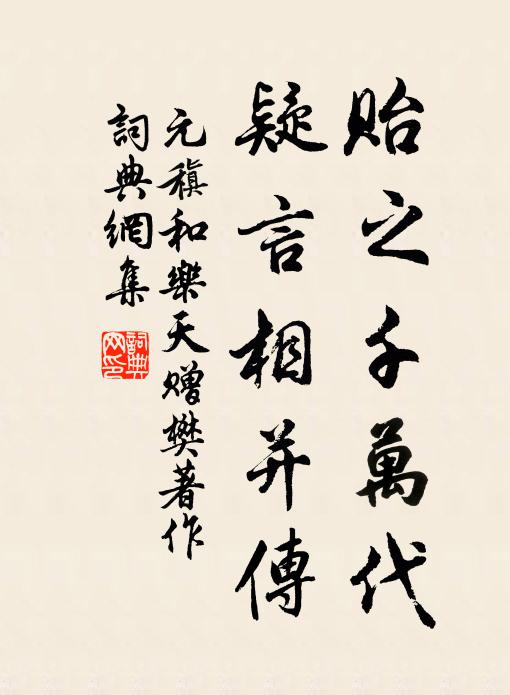 貽之千萬代
疑言相并傳
元稹和樂天贈樊著作
詞典網集
詞典網印